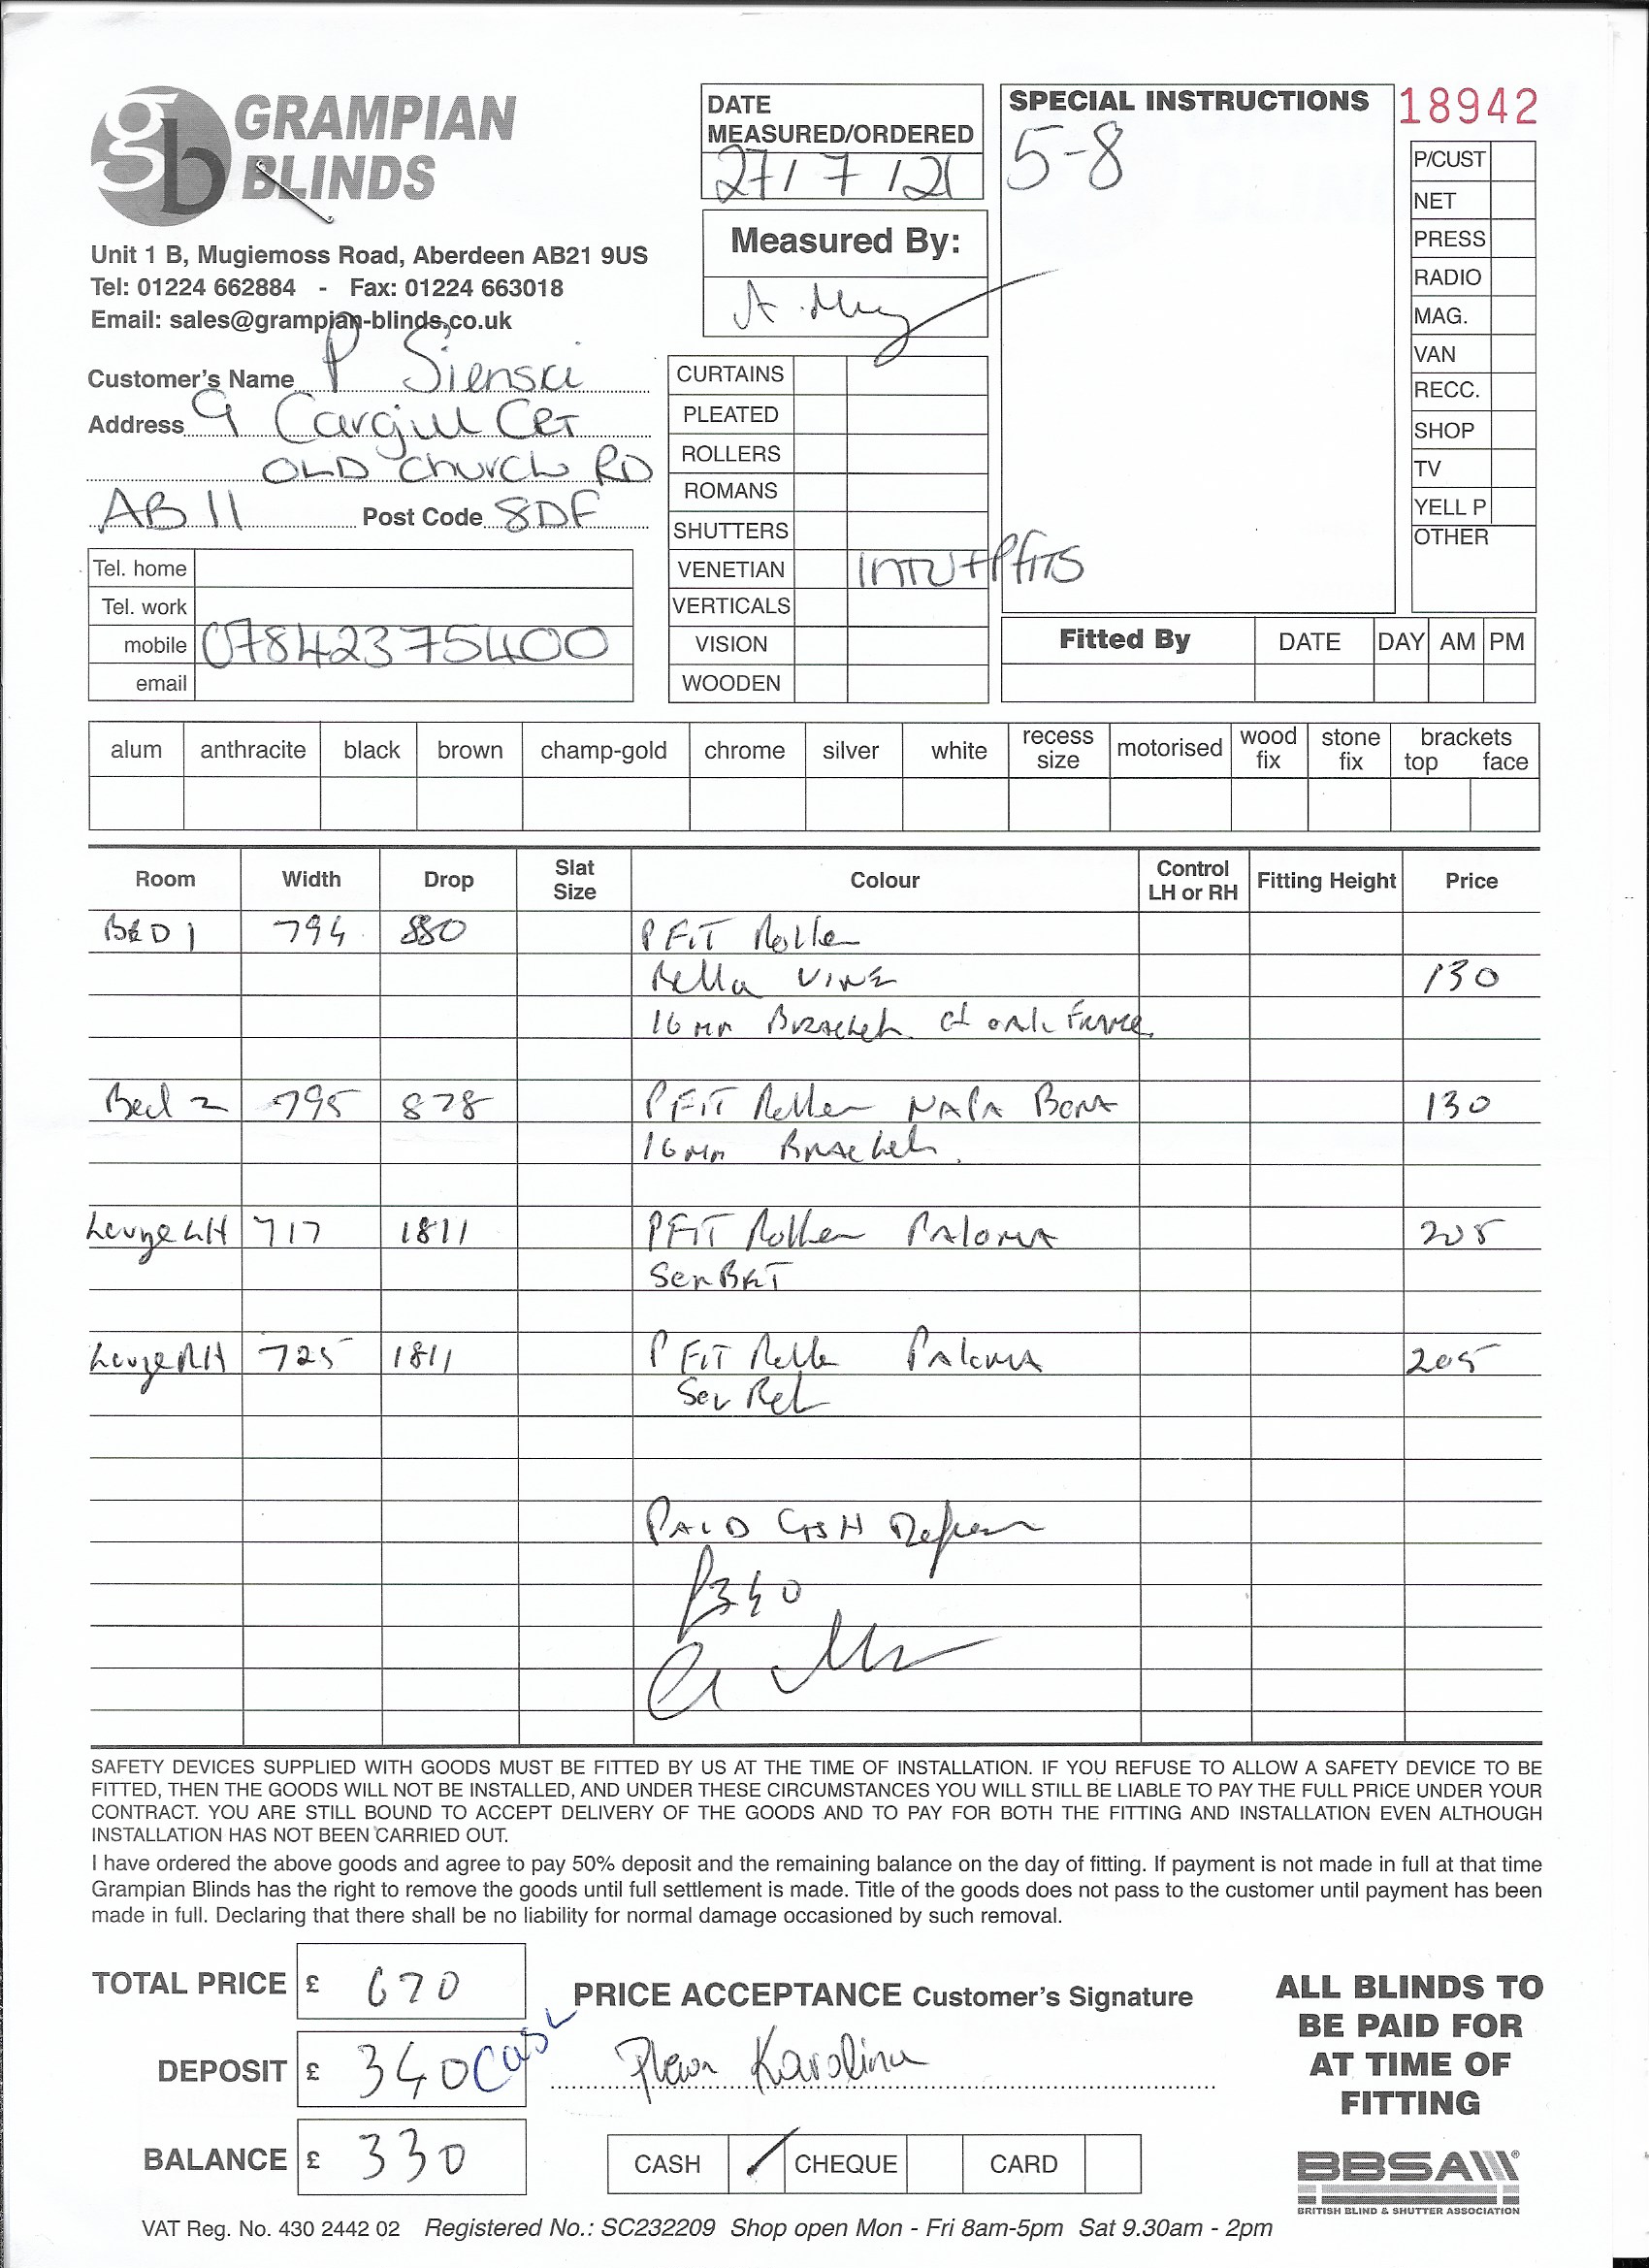 gb GRAMPIAN
BLINDS
Unit 1 B, Mugiemoss Road, Aberdeen AB21 9US
Tel: 01224 662884 - Fax: 01224 663018
Email: sales@grampian-blinds.co.uk
Customer's Name P Sienski
Address 9 Cargill Crt
OLD Church RD
AB11 Post Code 8DF
Tel. home
Tel. work
mobile 07842375400
email
DATE
MEASURED/ORDERED
27/7/21
Measured By:
CURTAINS
PLEATED
ROLLERS
ROMANS
SHUTTERS
VENETIAN INTU + Pfits
VERTICALS
VISION
WOODEN
SPECIAL INSTRUCTIONS
5-8
18942
P/CUST
NET
PRESS
RADIO
MAG.
VAN
RECC.
SHOP
TV
YELL P
OTHER
Fitted By DATE DAY AM PM
alum anthracite black brown champ-gold chrome silver white recess size motorised wood fix stone fix brackets top face
Room Width Drop Slat Size Colour Control LH or RH Fitting Height Price
BED 1 794 880 PFiT Roller
Bella VINE 130
16mm Bracket
Bed 2 795 878 PFiT Roller NAPA 130
16mm Bracket
Lounge LH 717 1811 PFiT Roller PALOMA 205
SorBET
Lounge RH 725 1811 PFiT Roller PALOMA 205
PAID CASH
£340
SAFETY DEVICES SUPPLIED WITH GOODS MUST BE FITTED BY US AT THE TIME OF INSTALLATION. IF YOU REFUSE TO ALLOW A SAFETY DEVICE TO BE
FITTED, THEN THE GOODS WILL NOT BE INSTALLED, AND UNDER THESE CIRCUMSTANCES YOU WILL STILL BE LIABLE TO PAY THE FULL PRICE UNDER YOUR
CONTRACT. YOU ARE STILL BOUND TO ACCEPT DELIVERY OF THE GOODS AND TO PAY FOR BOTH THE FITTING AND INSTALLATION EVEN ALTHOUGH
INSTALLATION HAS NOT BEEN CARRIED OUT.
I have ordered the above goods and agree to pay 50% deposit and the remaining balance on the day of fitting. If payment is not made in full at that time
Grampian Blinds has the right to remove the goods until full settlement is made. Title of the goods does not pass to the customer until payment has been
made in full. Declaring that there shall be no liability for normal damage occasioned by such removal.
TOTAL PRICE £ 670
DEPOSIT £ 340 Cash
BALANCE £ 330
PRICE ACCEPTANCE Customer's Signature
Karolina
CASH ✓ CHEQUE CARD
ALL BLINDS TO
BE PAID FOR
AT TIME OF
FITTING
BBSA
BRITISH BLIND & SHUTTER ASSOCIATION
VAT Reg. No. 430 2442 02 Registered No.: SC232209 Shop open Mon - Fri 8am-5pm Sat 9.30am - 2pm